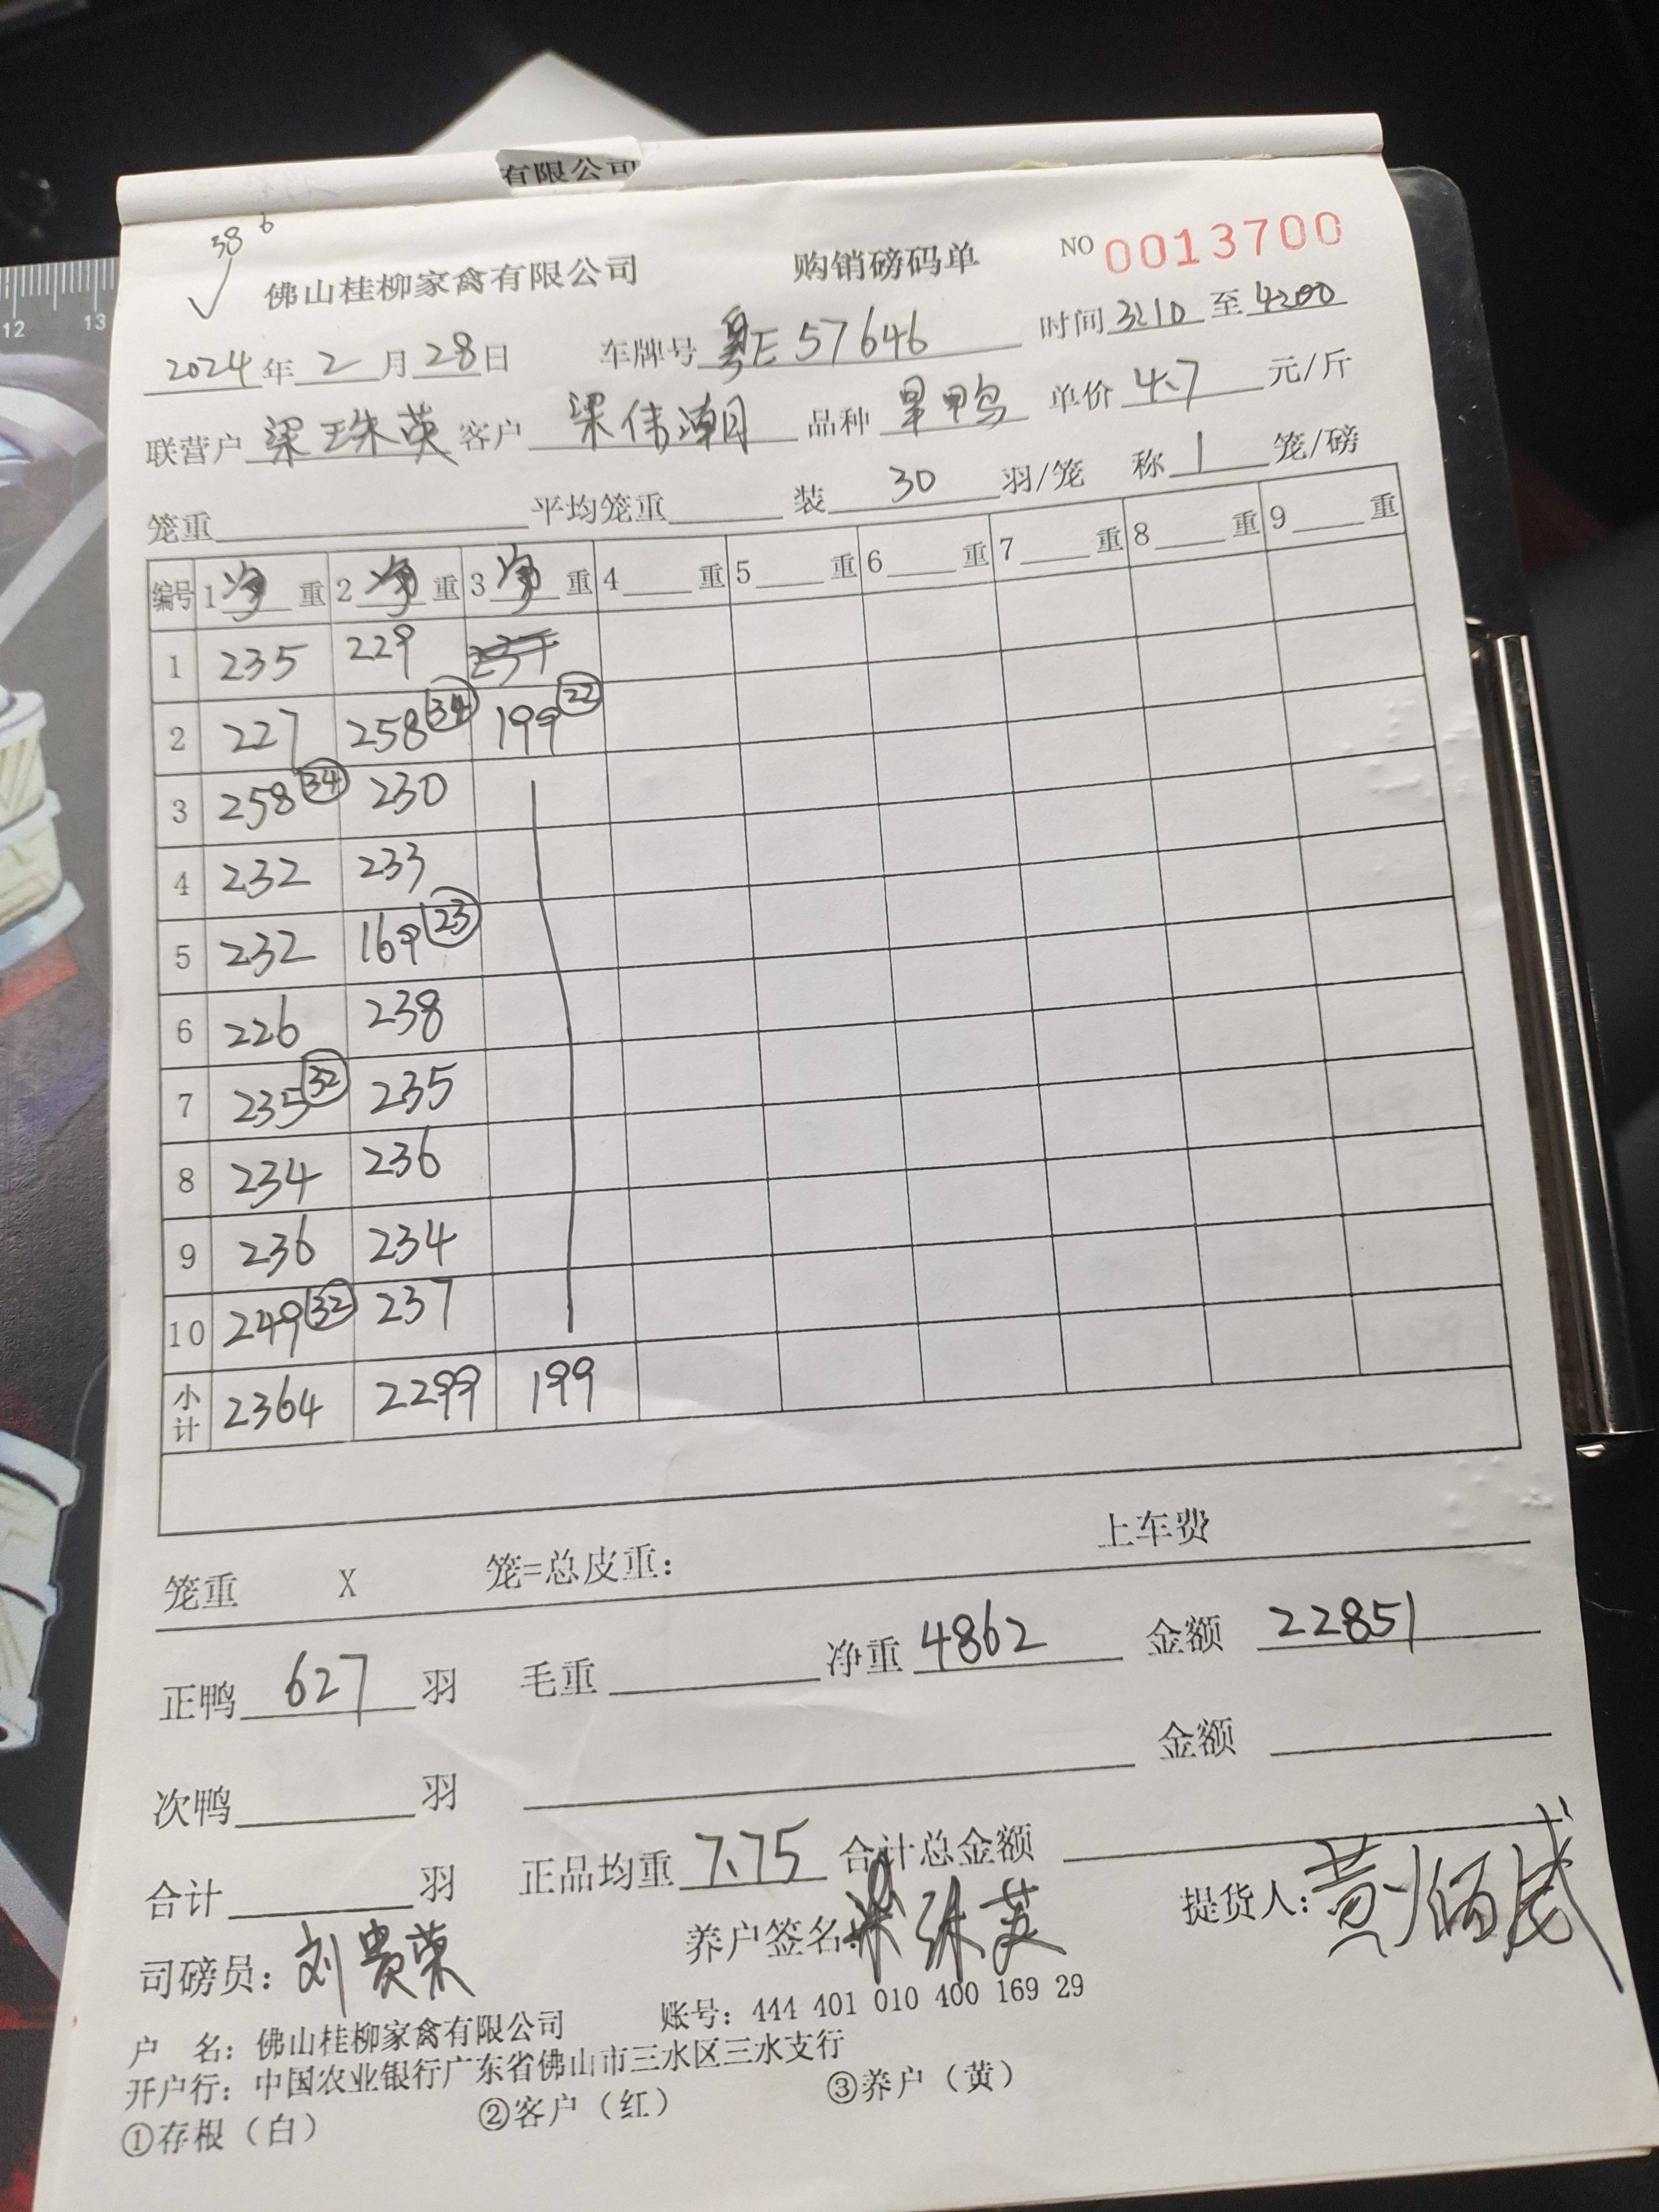 有限公司
38 6
佛山桂柳家禽有限公司 购销磅码单 NO 0013700
2024年2月28日 车牌号 粤E57646 时间 3210 至 4200
联营户 梁珠英 客户 梁伟潮 品种 旱鸭 单价 4.7 元/斤
笼重 平均笼重 装 30 羽/笼 称 1 笼/磅
编号 1 净 重 2 净 重 3 净 重 4 重 5 重 6 重 7 重 8 重 9 重
1 235 229
2 227 258 34 199 22
3 258 34 230
4 232 233
5 232 169 23
6 226 238
7 235 32 235
8 234 236
9 236 234
10 249 32 237
小计 2364 2299 199
笼重 X 笼=总皮重: 上车费
正鸭 627 羽 毛重 净重 4862 金额 22851
次鸭 羽 金额
合计 羽 正品均重 7.75 合计总金额
司磅员: 刘贵荣 养户签名: 梁珠英 提货人: 黄
户 名: 佛山桂柳家禽有限公司 账号: 444 401 010 400 169 29
开户行: 中国农业银行广东省佛山市三水区三水支行
①存根（白） ②客户（红） ③养户（黄）
12 13